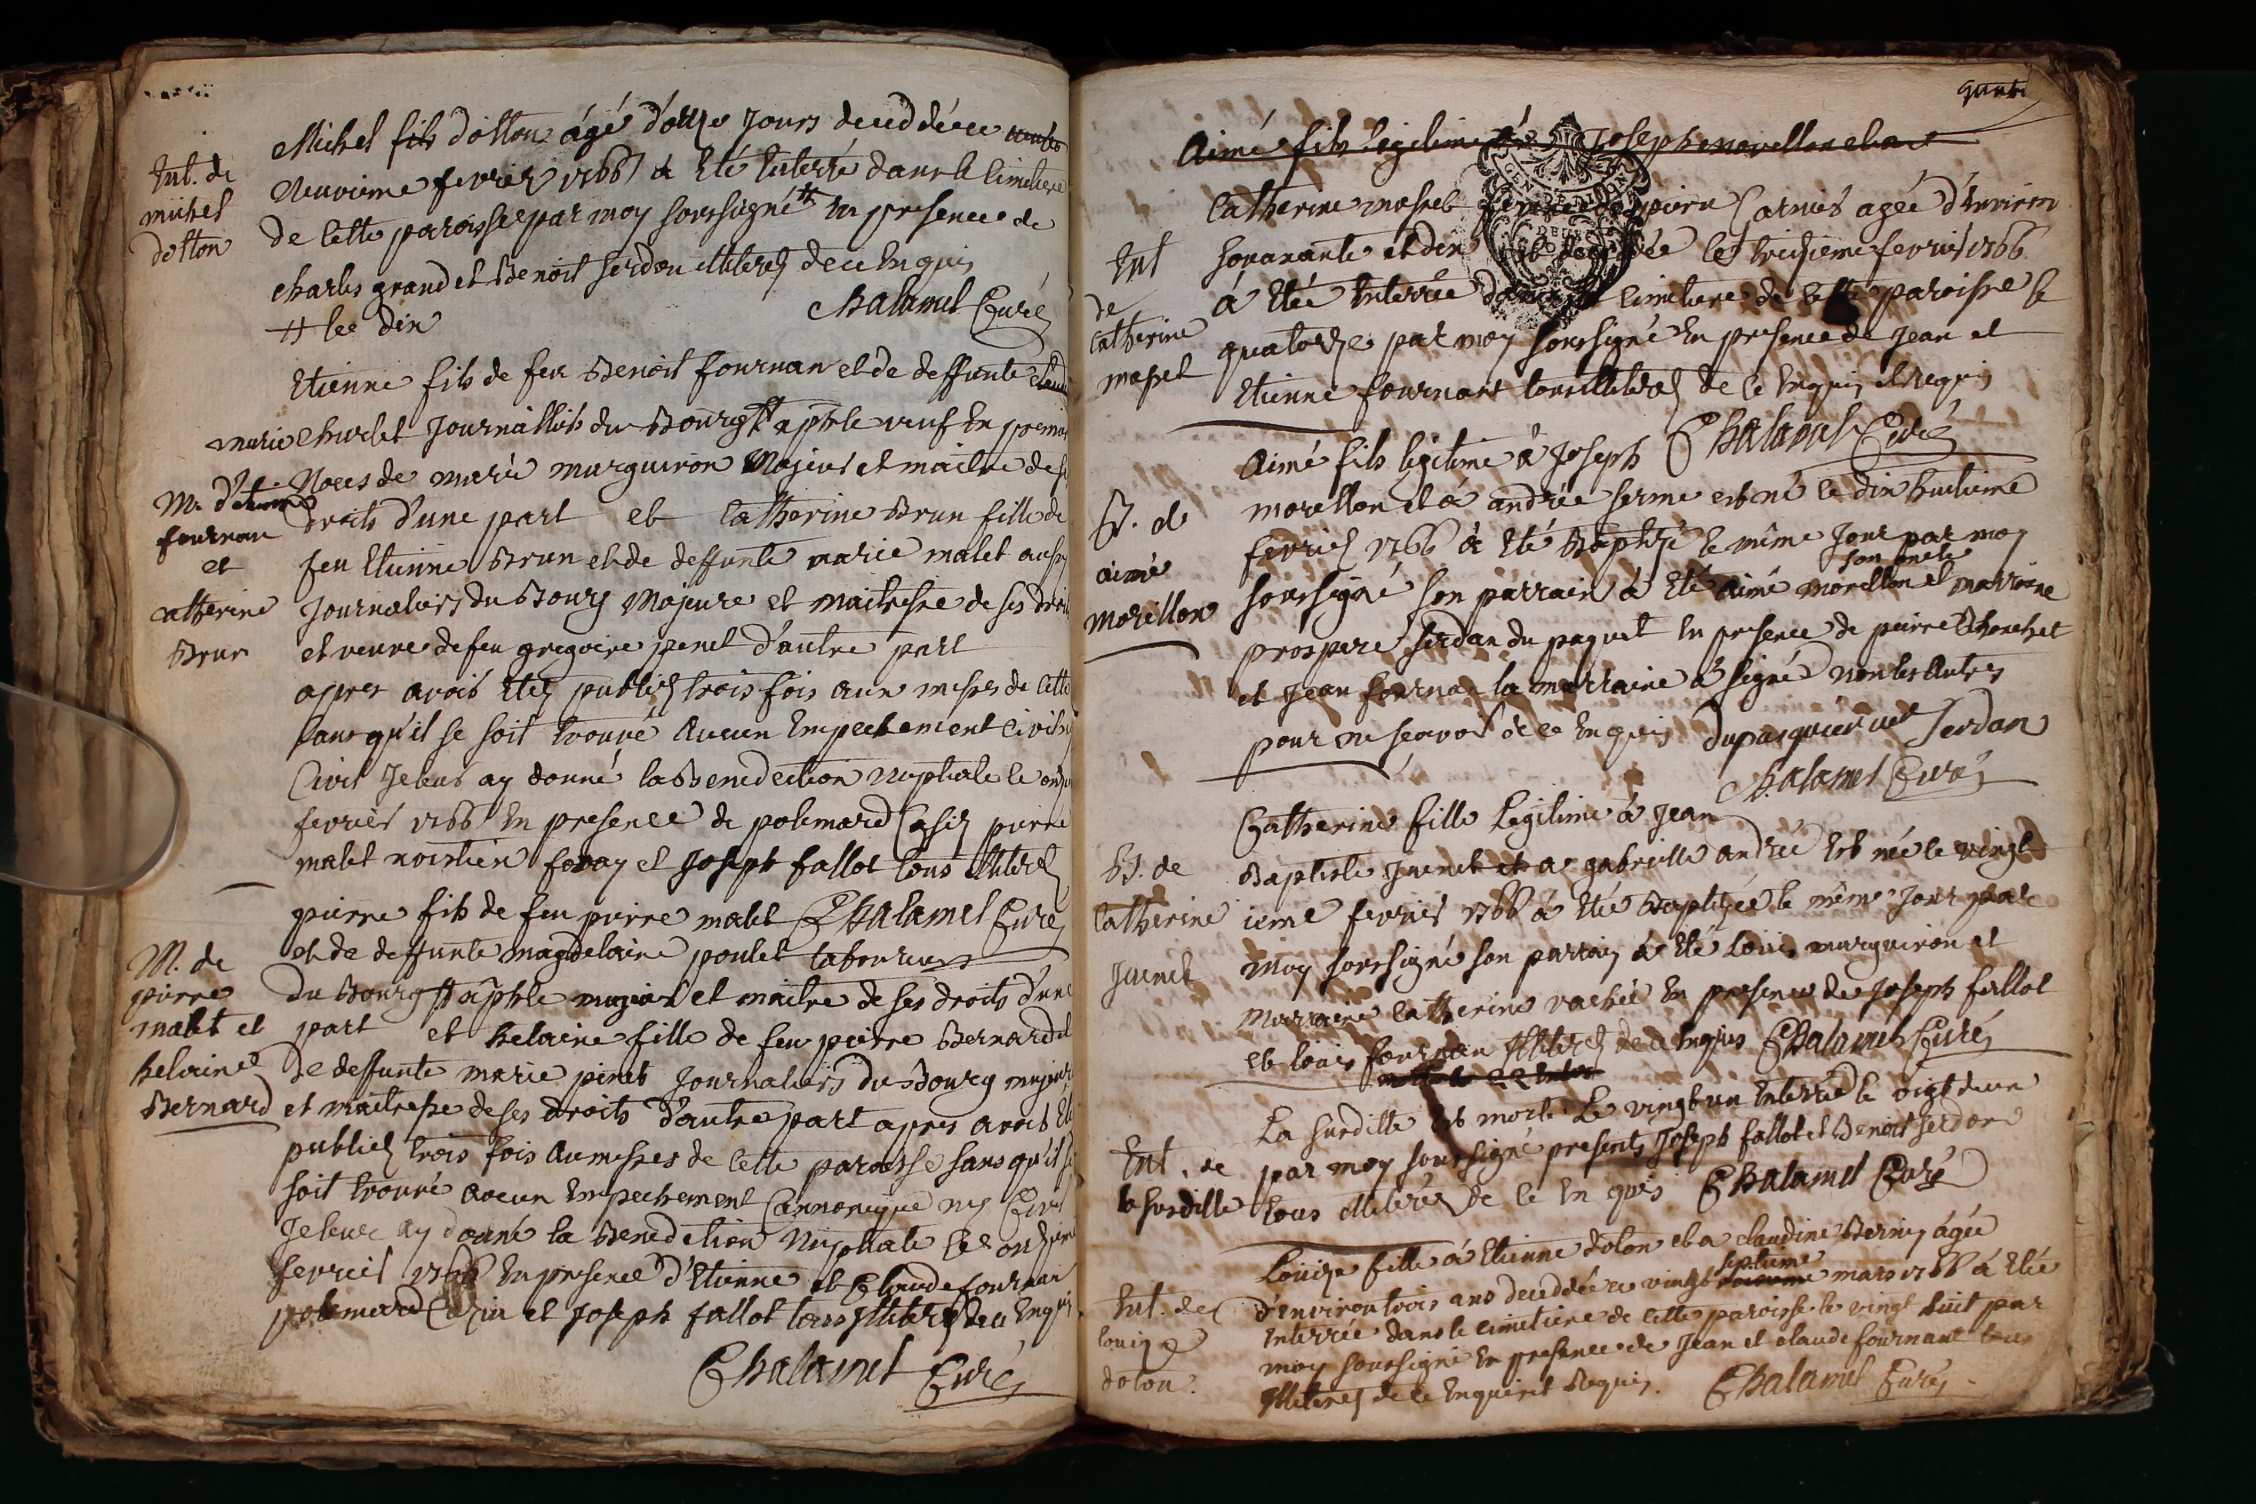 Ent. de
michel
dotton
Michel fils dotton âgé d'onze Jours deceddé ce
Neuvieme fevrier 1766 a Eté Enterré dans le Cimetiere
de cette paroisse par moy soussigné # En presence de
charles grand et Benoit serdon illiterés de ce Enquis
# lee dix
Chalamel Curé
M. d'Etienne
fournan
et
catherine
Brun
Etienne fils de feu Benoit fournan et de deffunte claudine
marie churlet Journallier du Bourg st aphle veuf En premier
Noces de marie murguiron Majeur et maitre de ses
droits d'une part et Catherine Brun fille de
feu Etienne Brun et de deffunte marie malet aussy
Journaliers du Bourg Majeure et maitresse de ses droits
et veuve de feu gregoire penet d'autre part
apres avoir Etés publiés trois fois aux messes de cette
sans qu'il se soit trouvé Aucun Empechement civil ny
Civil Je leur ay donné la Benediction Nuptiale le onze
fevrier 1766 En presence de polemard Casin pierre
malet noistier foray et Joseph fallot tous illiterés
Chalamel Curé
M. de
pierre
malet et
helaine
Bernard
pierre fils de feu pierre malet
et de deffunte magdelaine poulet laboureurs
du Bourg st aphle majeur et maitre de ses droits d'une
part et helaine fille de feu pierre Bernard et
de deffunte marie pinet Journaliers du Bourg majeure
et maitresse de ses droits d'autre part apres avoir Eté
publiés trois fois Au messes de cette paroisse sans qu'il se
soit trouvé aucun Empechement Cannonique ny Civil
Je leur ay donné la Benediction Nuptiale lee onzieme
fevrier 1766 En presence d'Etienne et Claude fournan
polemard Casin et Joseph fallot tous illiterés de ce Enquis
Chalamel Curé
Aimé fils legitime à Joseph morellon et a
Ent
de
Catherine
maset
Catherine masset femme de pierre Carnier agée d'Environ
soixante et dix deceddée le treizieme fevrier 1766
à Etée Enterrée dans le Cimetiere de cette paroisse le
quatorze par moy soussigné En presence de Jean et
Etienne fournant tous illiterés de ce Enquis et requis
Chalamel Curé
B. de
aimé
morellon
Aimé fils legitime à Joseph
morellon et à andrée serme est né le dix huitieme
fevrier 1766 à Eté Baptizé le même Jour par moy
soussigné son parrain à Eté Aimé morellon son oncle et marraine
prospere serdan du paquet En presence de pierre Chonchet
et Jean fournan la marraine à signé non les Autres
pour ne sçavoir de ce Enquis dupasquier née Serdan
Chalamel Curé
B. de
Catherine
Juenet
Catherine fille Legitime à Jean
Baptiste Juenet et a gabrielle andrée Est née le vingt
ieme fevrier 1766 à Eté Baptizée le même Jour par
moy soussigné son parrain à Eté Louis murguiron et
marraine Catherine vachée En presence de Joseph fallot
et louis fournan illiterés de ce Enquis Chalamel Curé
Ent. de
la susditte
La susditte Est morte Le vingt un Enterrée le vigt deux
par moy soussigné presents Joseph fallot et Benoit serdon
tous illiterés de ce En quis Chalamel Curé
Ent. de
louize
doton.
Louize fille à Etienne doton et a claudine Berney âgée
d'environ trois ans deceddée ce vingt septieme mars 1766 à Etée
Enterrée dans le Cimetiere de cette paroisse le vingt huit par
moy soussigné En presence de Jean et claude fournant tous
illiterés de ce Enquis et Requis. Chalamel Curé